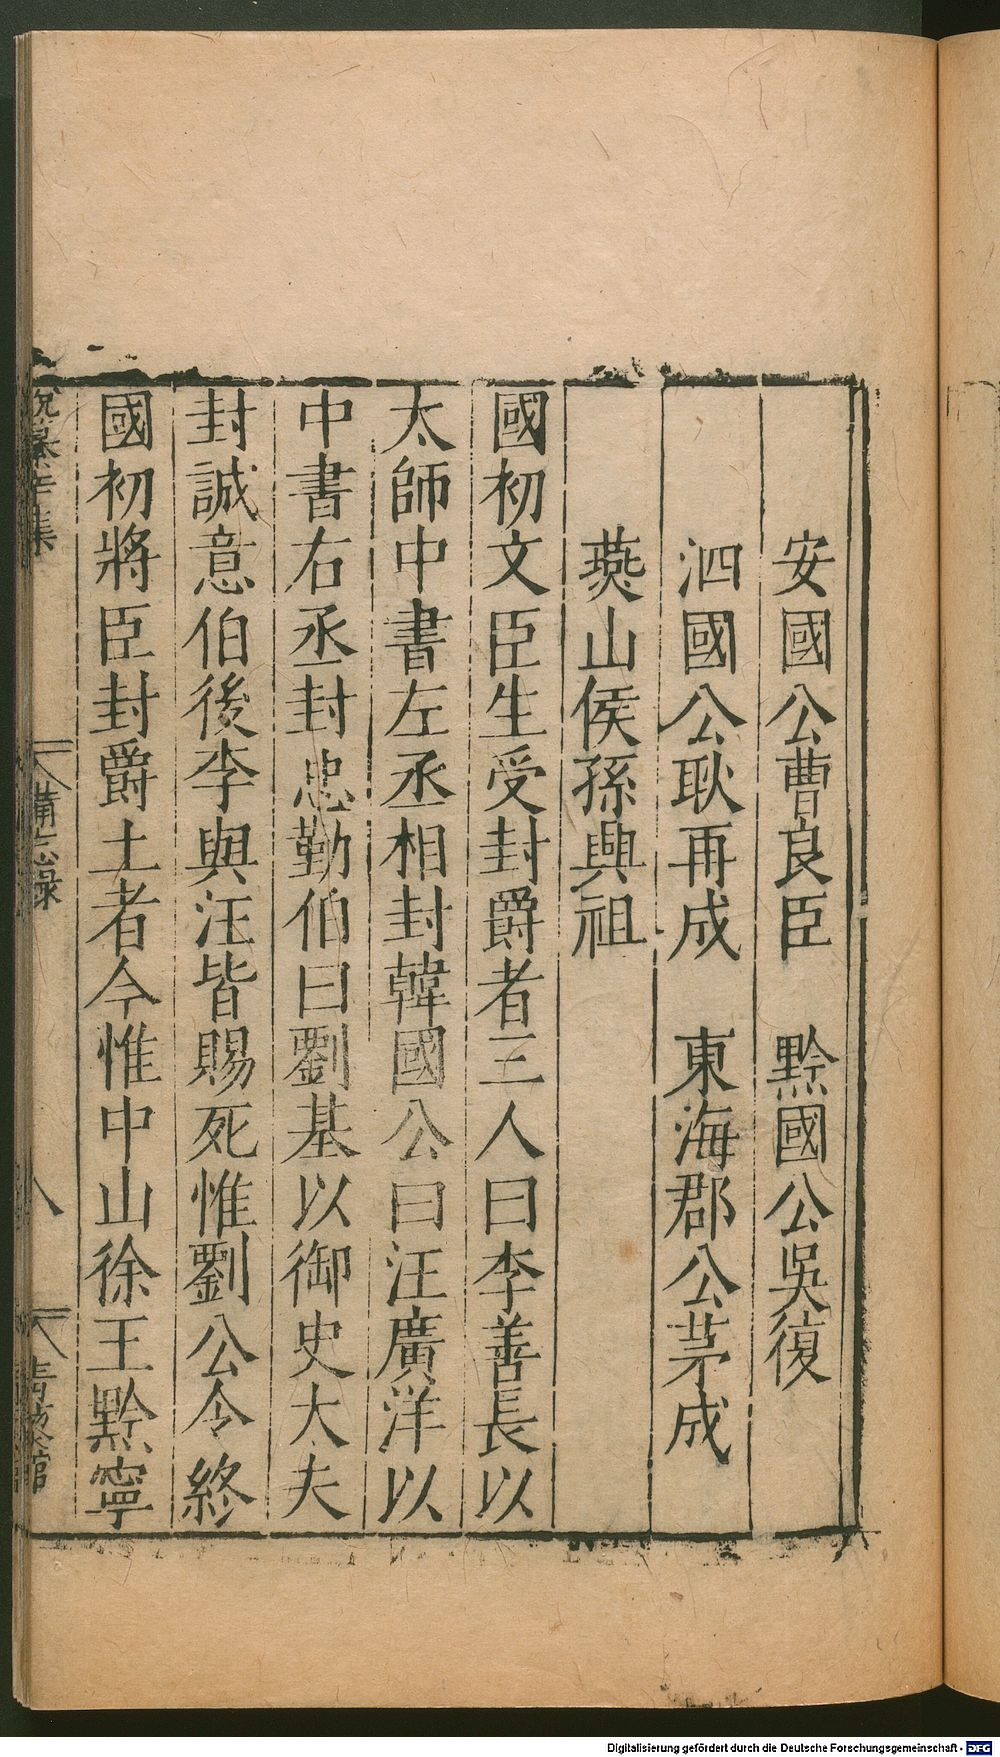 安國公曹良臣　黔國公吳復
泗國公耿再成　東海郡公茅成
燕山侯孫興祖
國初文臣生受封爵者三人曰李善長以
太師中書左丞相封韓國公曰汪廣洋以
中書右丞封忠勤伯曰劉基以御史大夫
封誠意伯後李與汪皆賜死惟劉公令終
國初將臣封爵土者今惟中山徐王黔寧
備忘錄
八
Digitalisierung gefördert durch die Deutsche Forschungsgemeinschaft - DFG